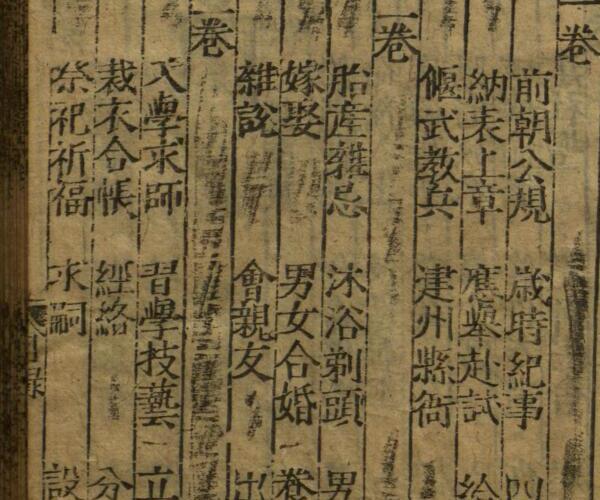 卷
前朝公規 歲時紀事
納表上章 應舉赴試 給
偃武教兵 建州縣衙
卷
胎產雜忌 沐浴剃頭 男
嫁娶 男女合婚
雜說 會親友 出
卷
入學求師 習學技藝 立
裁衣合帳 經絡 分
祭祀祈福 求嗣 設
目錄